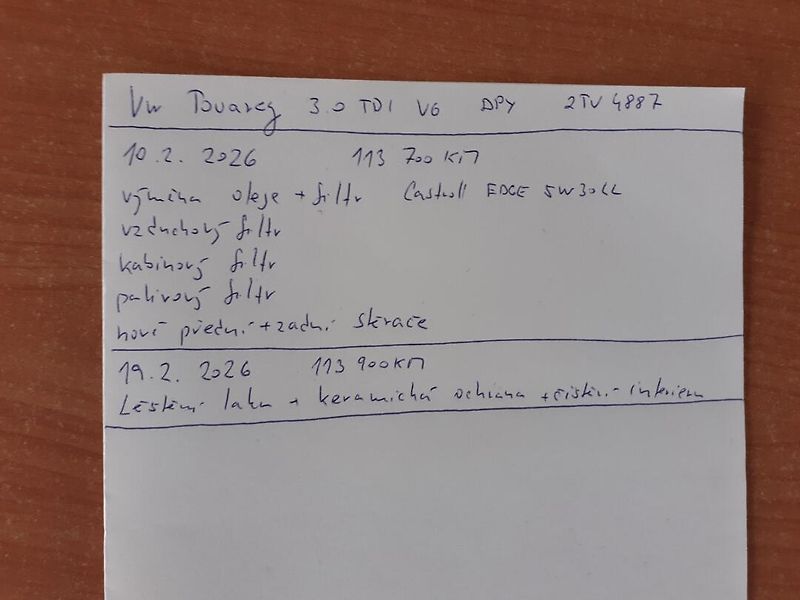 VW Touareg 3.0 TDI V6 DPY 2TV 4887
10.2. 2026 113 700 KM
výměna oleje + filtr Castroll EDGE 5W30LL
vzduchový filtr
kabinový filtr
palivový filtr
nové přední + zadní stěrače
19.2. 2026 113 900 KM
Leštění laku + keramická ochrana + čištění interieru